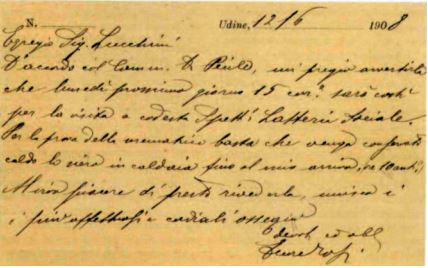 N. Udine, 12/6 1908
Egregio Sig. Lucchini
D'accordo col Comm. D. Pecile, mi pregio avvertirla
che lunedì prossimo giorno 15 corr. sarò costì
per la visita a codesta Spett. Latteria Sociale.
Per la prova della crematrice basta che venga conservato
caldo il siero in caldaia fino al mio arrivo,
Mi sia piacere di presto rivederla, unisco i
i più affettuosi e cordiali ossegui
devot. ed obbl.